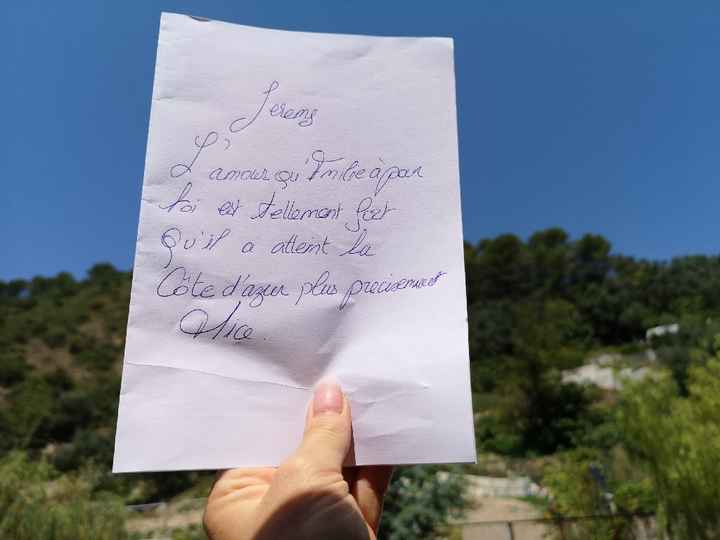 Jeremy
L'amour qu'Emilie à pour
toi est tellement fort
Qu'il a atteint la
Côte d'azur plus precisement
Nice.